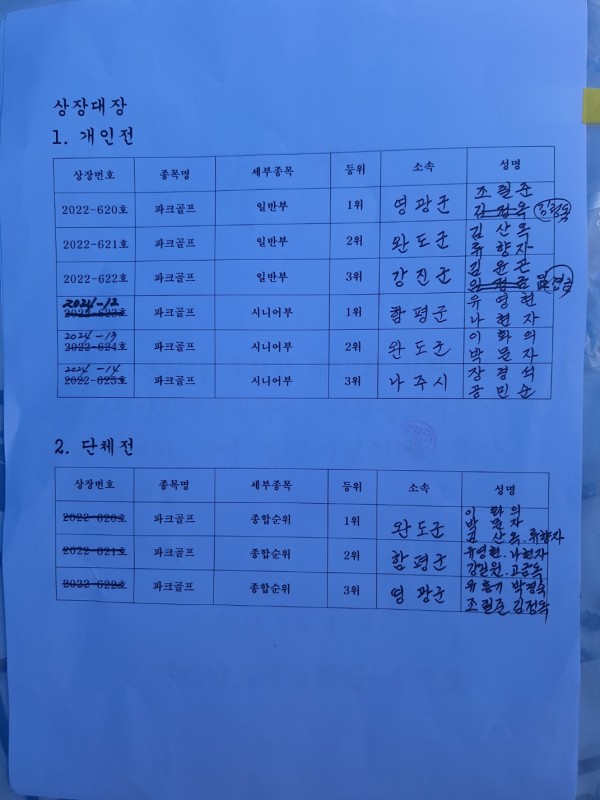 상장대장
1. 개인전
상장번호 종목명 세부종목 등위 소속 성명
2022-620호 파크골프 일반부 1위 영광군 조필준
김정옥
2022-621호 파크골프 일반부 2위 완도군 김산옥
류향자
2022-622호 파크골프 일반부 3위 강진군 김윤관
2024-12
2022-623호 파크골프 시니어부 1위 함평군 유영현
나현자
2024-13
2022-624호 파크골프 시니어부 2위 완도군 이화의
박문자
2024-14
2022-625호 파크골프 시니어부 3위 나주시 장경석
공민순
2. 단체전
상장번호 종목명 세부종목 등위 소속 성명
2022-620호 파크골프 종합순위 1위 완도군 이화의
박문자
김산옥.류향자
2022-621호 파크골프 종합순위 2위 함평군 유영현.나현자
고금옥
2022-622호 파크골프 종합순위 3위 영광군 박정숙
조필준 김정옥